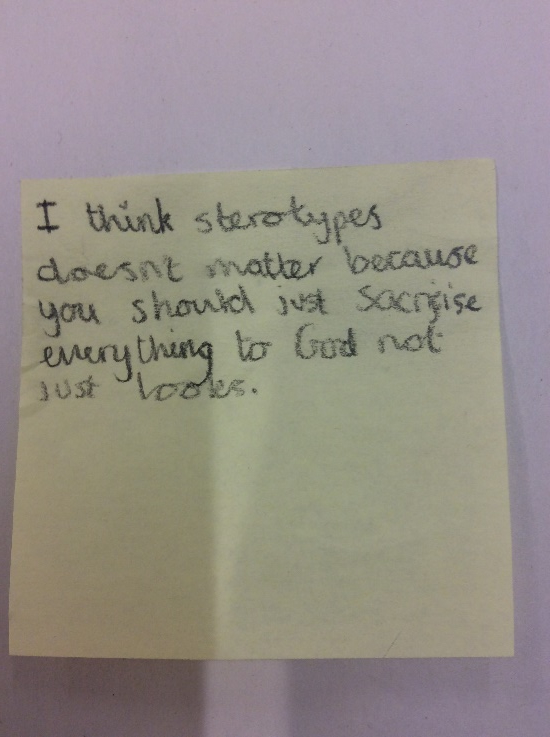 I think sterotypes
doesn't matter because
you should just Sacrifise
everything to God not
just looks.